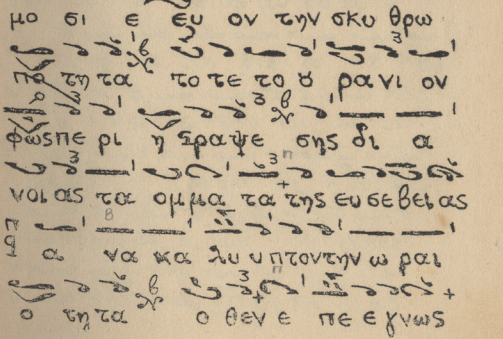 μο σι ε ευ ον την σκυ θρω
πο τη τα το τε το ȣ ρα νι ον
φωςπε ρι η ςραψε σης δι α
νοι ας τα ομμα τα της ευ σε βει ας
α να κα λυ υ πτοντην ω ραι
ο τη τα ο θεν ε πε ε γνως